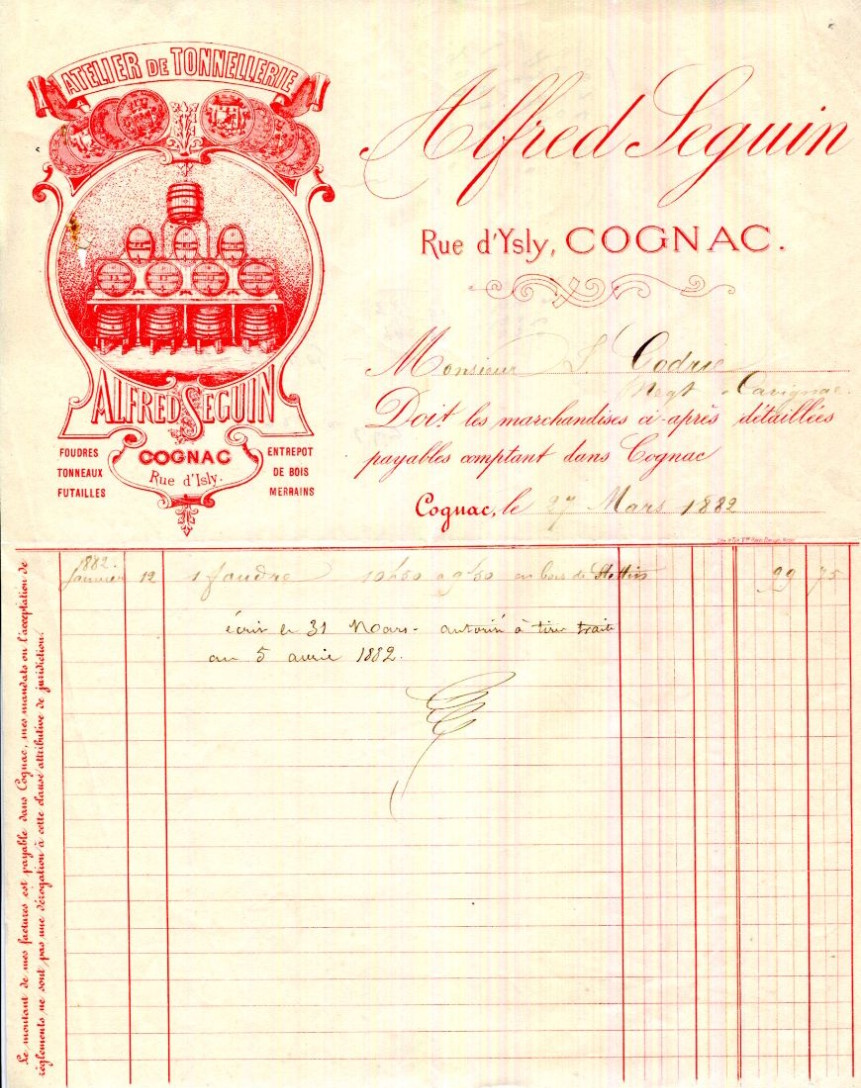 ATELIER DE TONNELLERIE
ALFRED SEGUIN
COGNAC
Rue d'Isly.
FOUDRES
TONNEAUX
FUTAILLES
ENTREPOT
DE BOIS
MERRAINS
Alfred Seguin
Rue d'Ysly, COGNAC.
Monsieur S. Godrie
Negt Cavignac
Doit les marchandises ci-après détaillées
payables comptant dans Cognac
Cognac, le 27 Mars 1882
1882.
Janvier 12 1 foudre en bois de Stettin 99 75
écrir le 31 Mars. autorisé à tirer traite
au 5 avril 1882.
Le montant de mes factures est payable dans Cognac, mes mandats ou l'acceptation de
règlements ne sont pas une dérogation à cette clause attributive de juridiction.